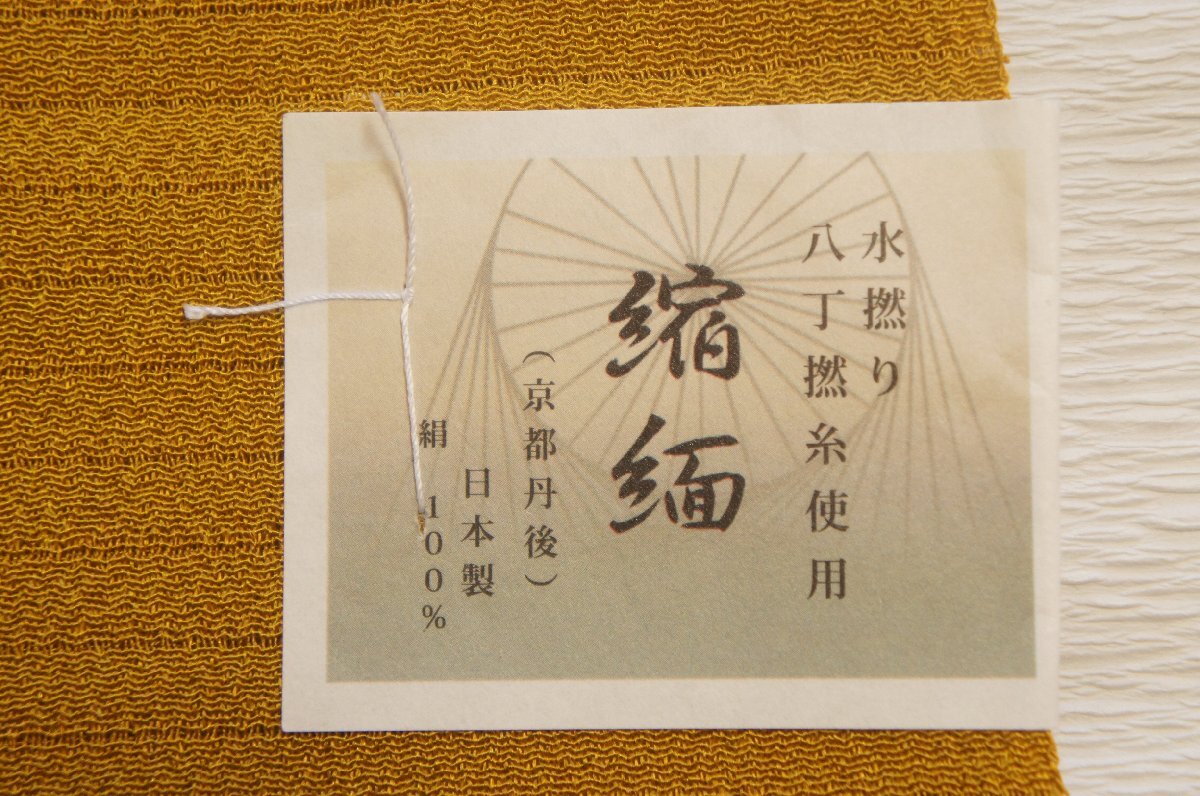 水撚り
八丁撚糸使用
縮緬
(京都丹後)
日本製
絹 100%